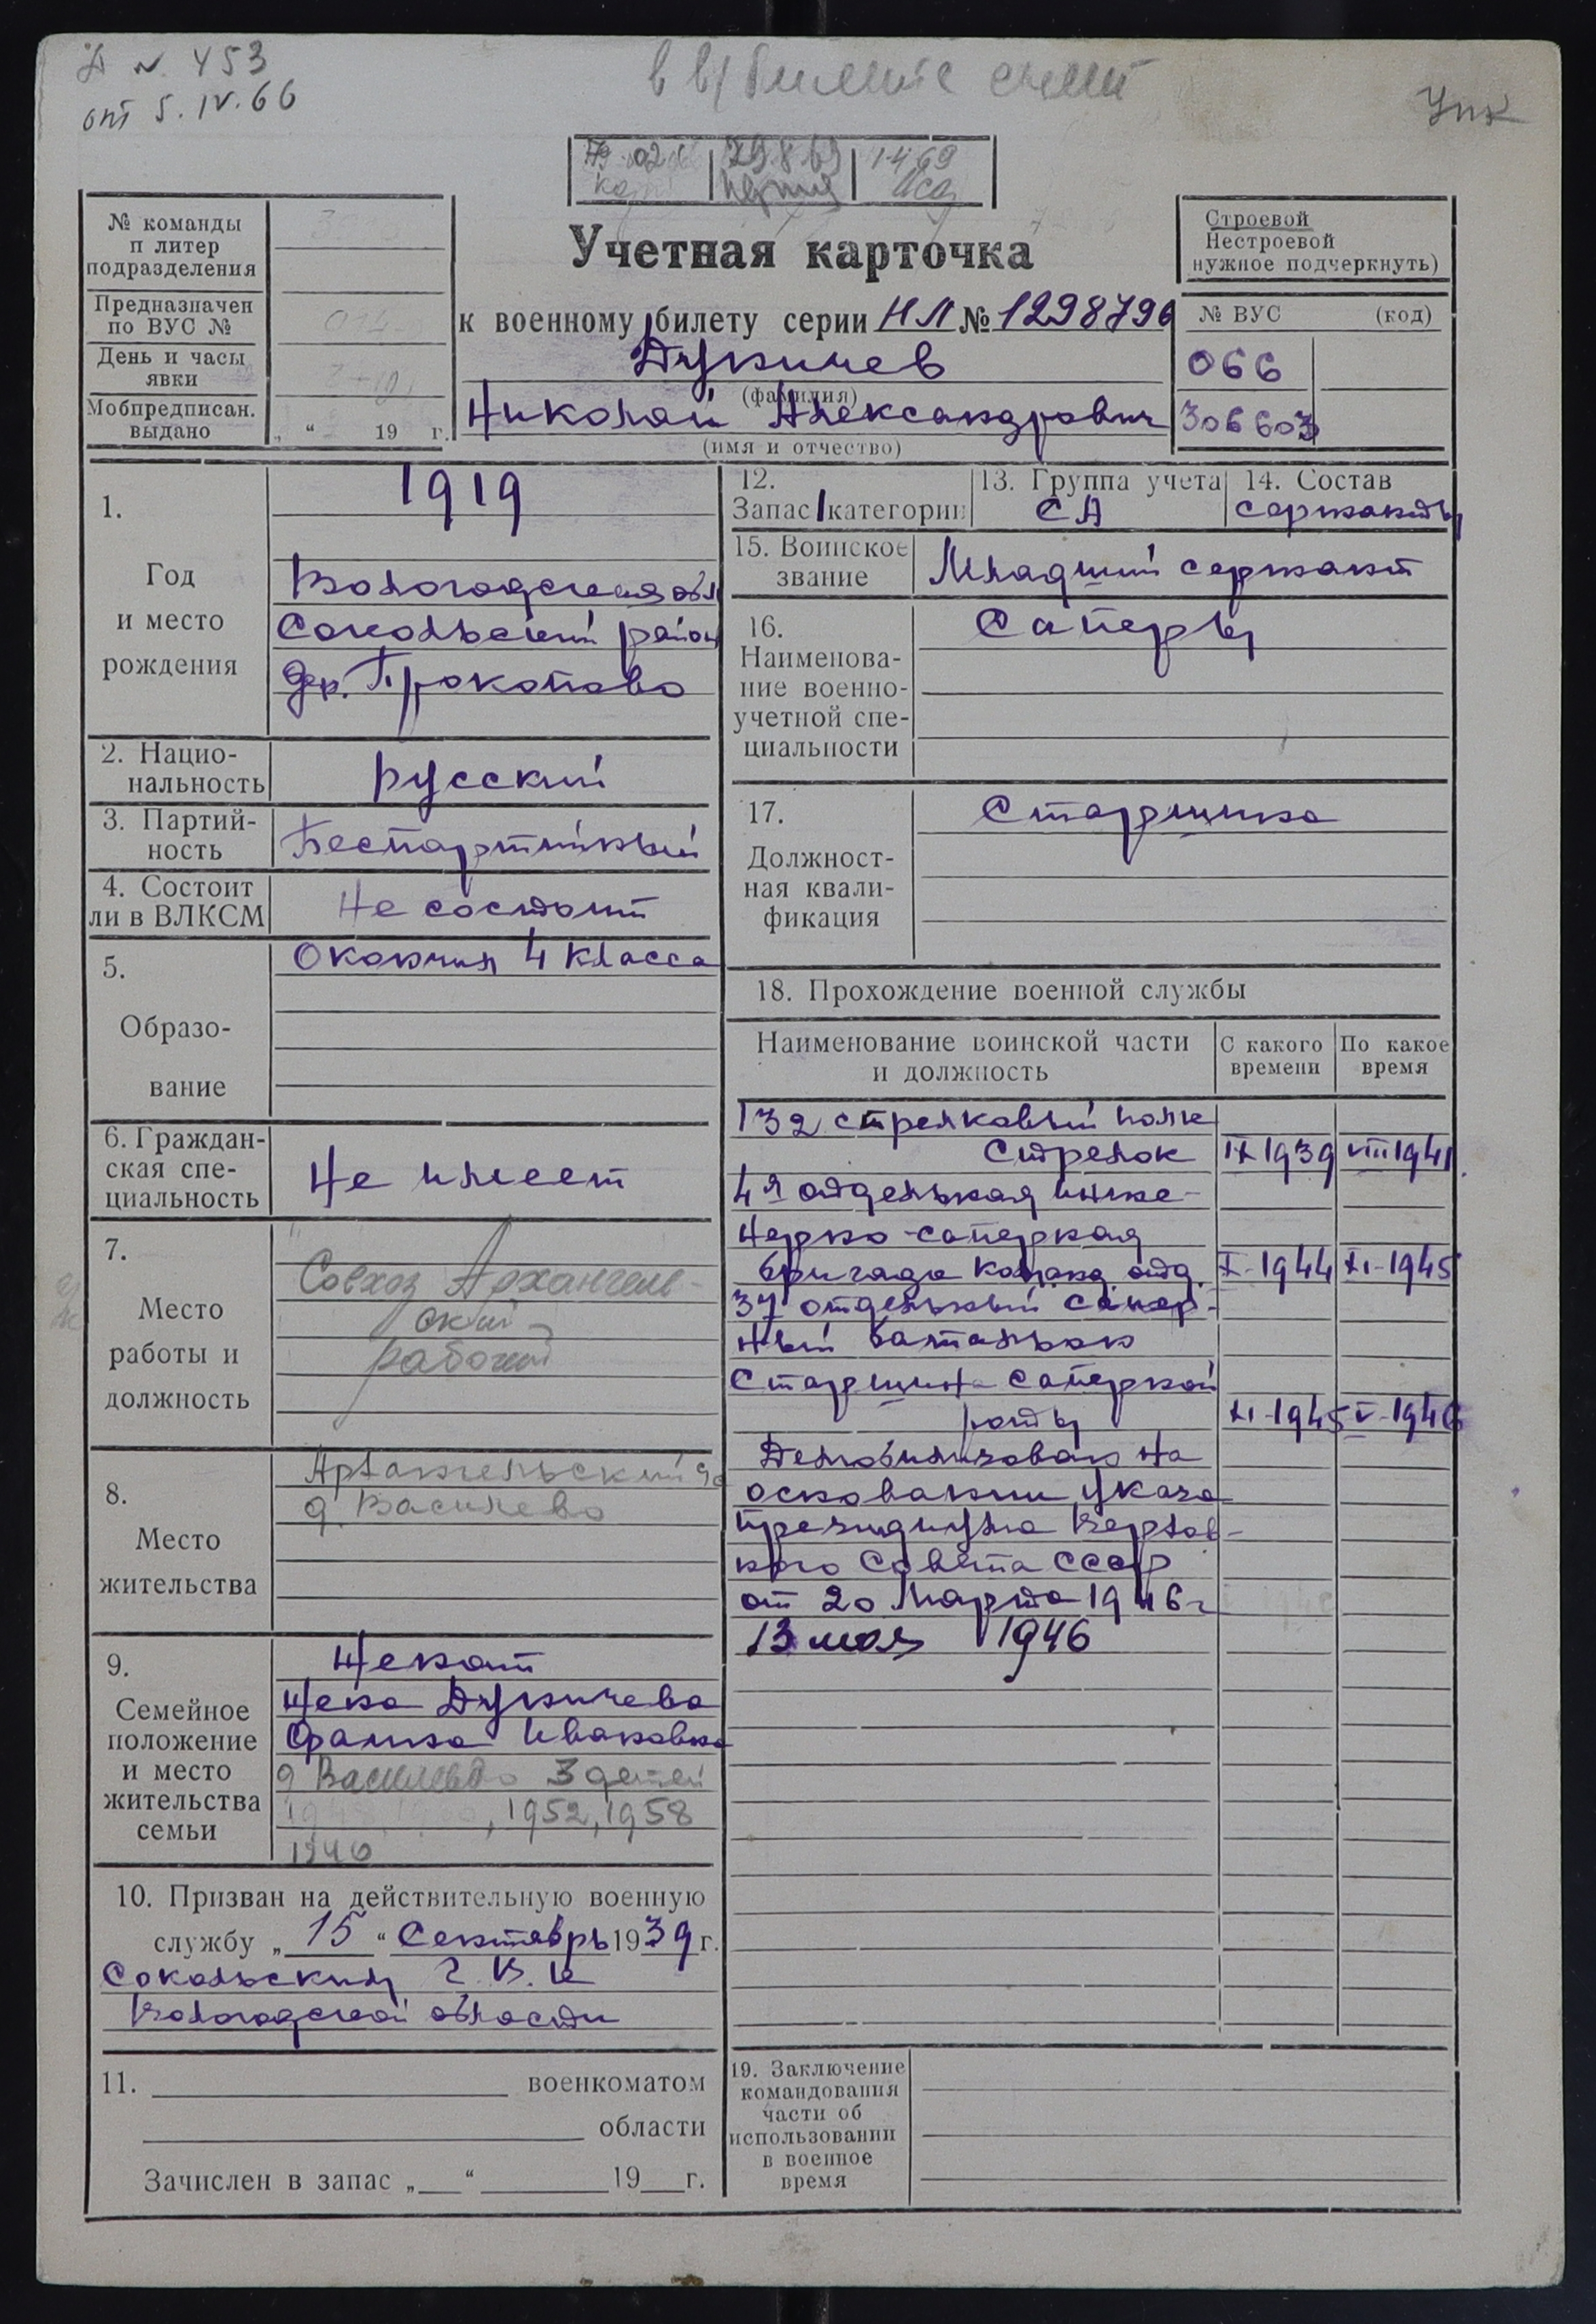 № 453
от 5.IV.66
в в/билете
УПК
№ команды
п литер
подразделения
Предназначен
по ВУС №
День и часы
явки
Мобпредписан.
выдано
„ “ 19 г.
Учетная карточка
к военному билету серии НЛ № 1298796
Дукичев
(фамилия)
Николай Александрович
(имя и отчество)
Строевой
Нестроевой
нужное подчеркнуть)
№ ВУС (код)
066
306603
1.
Год
и место
рождения
1919
Вологодская обл
Сокольский район
дер. Прокопово
2. Нацио-
нальность
русский
3. Партий-
ность
Беспартийный
4. Состоит
ли в ВЛКСМ
Не состоит
5.
Образо-
вание
Окончил 4 класса
6. Граждан-
ская спе-
циальность
Не имеет
7.
Место
работы и
должность
Совхоз Архангель-
ский -
рабочий
8.
Место
жительства
Архангельский
д. Василево
9.
Семейное
положение
и место
жительства
семьи
Женат
Жена Дукичева
Фаина Ивановна
д Василево 3 детей
, 1952, 1958
1946
10. Призван на действительную военную
службу „ 15 “ Сентябрь 1939 г.
Сокольским Г.В.К
Вологодской области
11. военкоматом
области
Зачислен в запас „ “ 19 г.
12.
Запас 1 категории
13. Группа учета
СА
14. Состав
сержанты
15. Воинское
звание
Младший сержант
16.
Наименова-
ние военно-
учетной спе-
циальности
Саперы
17.
Должност-
ная квали-
фикация
Старшина
18. Прохождение военной службы
Наименование воинской части
и должность
С какого
времени
По какое
время
132 стрелковый полк
Стрелок IX 1939 VIII 1941
4я отдельная инже-
нерно-саперная
бригада команд. отд. X-1944 XI-1945
37 отдельный сапер-
ный батальон
Старшина саперной
роты XI-1945 V-1946
Демобилизован на
основании указа
Президиума Верхов-
ного Совета СССР
от 20 марта 1946 г
13 мая 1946
19. Заключение
командования
части об
использовании
в военное
время